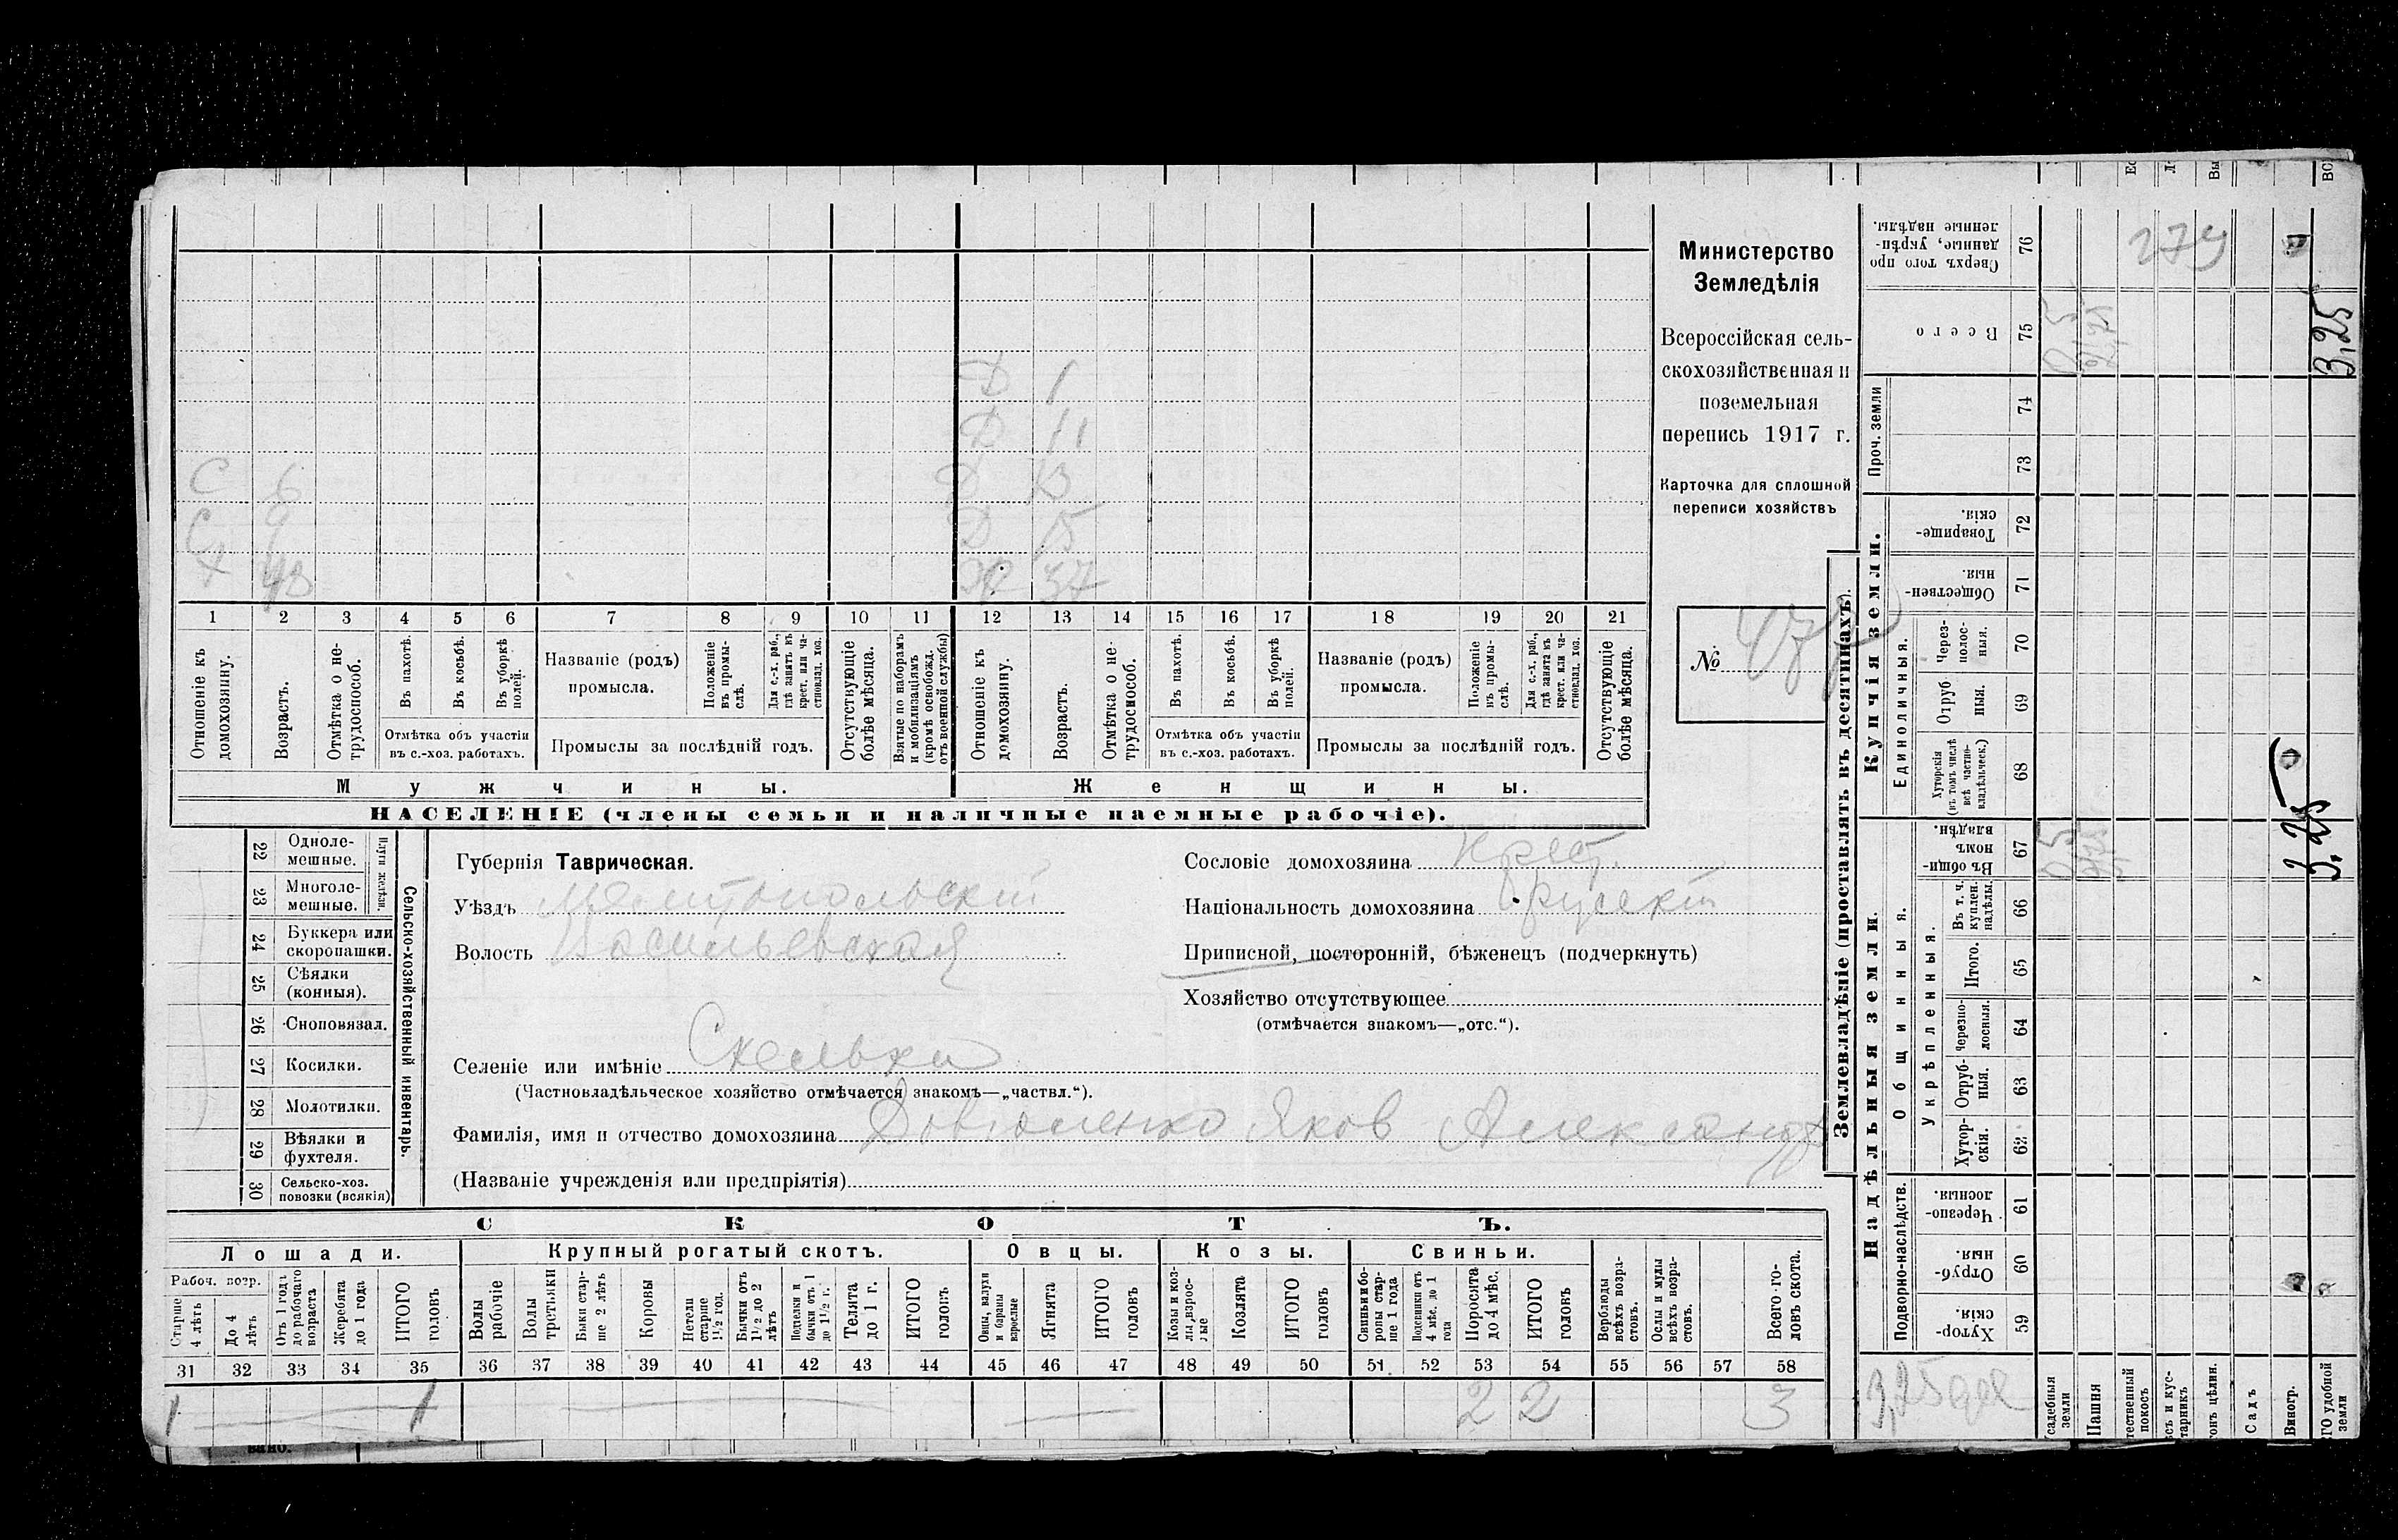 Д 1
Д 11
С 6 Д 13
С 9 Д 15
Х 48 Ж 37
1 2 3 4 5 6 7 8 9 10 11 12 13 14 15 16 17 18 19 20 21
Отношеніе къ домохозяину.
Возрастъ.
Отмѣтка о не-
трудоспособ.
Въ пахотѣ.
Въ косьбѣ.
Въ уборкѣ
полей.
Отмѣтка объ участіи
въ с.-хоз. работахъ.
Названіе (родъ)
промысла.
Положеніе
въ промы-
слѣ.
Для с.-х. раб.,
гдѣ занятъ въ
крест. или ча-
стновлад. хоз.
Промыслы за послѣдній годъ.
Отсутствующіе
болѣе мѣсяца.
Взятые по наборамъ
и мобилизаціямъ
(кромѣ освобожд.
отъ военной службы)
Отношеніе къ
домохозяину.
Возрастъ.
Отмѣтка о не-
трудоспособ.
Въ пахотѣ.
Въ косьбѣ.
Въ уборкѣ
полей.
Отмѣтка объ участіи
въ с.-хоз. работахъ.
Названіе (родъ)
промысла.
Положеніе
въ промы-
слѣ.
Для с.-х. раб.,
гдѣ занята въ
крест. или ча-
стновлад. хоз.
Промыслы за послѣдній годъ.
Отсутствующіе
болѣе мѣсяца.
Мужчины.
Женщины.
НАСЕЛЕНІЕ (члены семьи и наличные наемные рабочіе).
Министерство
Земледѣлія
Всероссійская сель-
скохозяйственная и
поземельная
перепись 1917 г.
Карточка для сплошной
переписи хозяйствъ
№ 47
22 Одноле-
мешные.
23 Многоле-
мешные.
Плуги желѣзн.
24 Буккера или
скоропашки.
25 Сѣялки
(конныя).
26 Сноповязал.
27 Косилки.
28 Молотилки.
29 Вѣялки и
фухтеля.
30 Сельско-хоз.
повозки (всякія)
Сельско-хозяйственный инвентарь.
Губернія Таврическая.
Уѣздъ Мелитопольскій
Волость Васильевская
Сословіе домохозяина крест.
Національность домохозяина русскій
Приписной, посторонній, бѣженецъ (подчеркнуть)
Хозяйство отсутствующее
(отмѣчается знакомъ—„отс.“).
Селеніе или имѣніе Скельки
(Частновладѣльческое хозяйство отмѣчается знакомъ—„частвл.“).
Фамилія, имя и отчество домохозяина Довгаленко Яков Александр
(Названіе учрежденія или предпріятія)
СКОТЪ.
Лошади. Крупный рогатый скотъ. Овцы. Козы. Свиньи.
Рабоч. возр.
Старше
4 лѣтъ
До 4
лѣтъ
Отъ 1 года
до рабочаго
возраста
Жеребята
до 1 года
ИТОГО
головъ
Волы
рабочіе
Волы
третьяки
Быки стар-
ше 2 лѣтъ
Коровы
Нетели
старше
1½ год.
Бычки отъ
1½ до 2
лѣтъ
Подтелки и
бычки отъ 1
до 1½ г.
Телята
до 1 г.
ИТОГО
головъ
Овцы, валухи
и бараны
взрослые
Ягнята
ИТОГО
головъ
Козы и коз-
лы взрос-
лые
Козлята
ИТОГО
головъ
Свиньи и бо-
ровы стар-
ше 1 года
Подсвинки отъ
4 мѣс. до 1
года
Поросята
до 4 мѣс.
ИТОГО
головъ
Верблюды
всѣхъ возра-
стовъ.
Ослы и мулы
всѣхъ возра-
стовъ.
Всего го-
ловъ скота.
31 32 33 34 35 36 37 38 39 40 41 42 43 44 45 46 47 48 49 50 51 52 53 54 55 56 57 58
1 1 2 2 3
Землевладѣніе (проставлять въ десятинахъ).
Купчія земли.
Надѣльныя земли.
Сверхъ того про
данные, укрѣп-
ленные надѣлы.
76
Всего
75
Проч. земли
74
73
Товарище-
скія.
72
Обществен-
ныя.
71
Единоличныя.
Через-
полос-
ныя.
70
Отруб
ныя.
69
Хуторскія
(въ томъ числѣ
всѣ частно-
владѣльческ.)
68
Общинныя.
Въ общи-
номъ
владѣн.
67
Укрѣпленныя.
Въ т. ч.
куплен.
надѣлы.
66
Итого.
65
Черезпо-
лосныя.
64
Отруб-
ныя.
63
Хутор-
скія.
62
Подворно-наслѣдств.
Черезпо-
лосныя.
61
Отруб-
ныя.
60
Хутор-
скія.
59
274
0,5
3,25
0,5
3,25
3,25 дес
усадебныя
земли
Пашня
тественный
покосъ
съ и кус-
тарникъ
онъ цѣлин.
Садъ
Виногр.
ГО удобной
земли
вано.